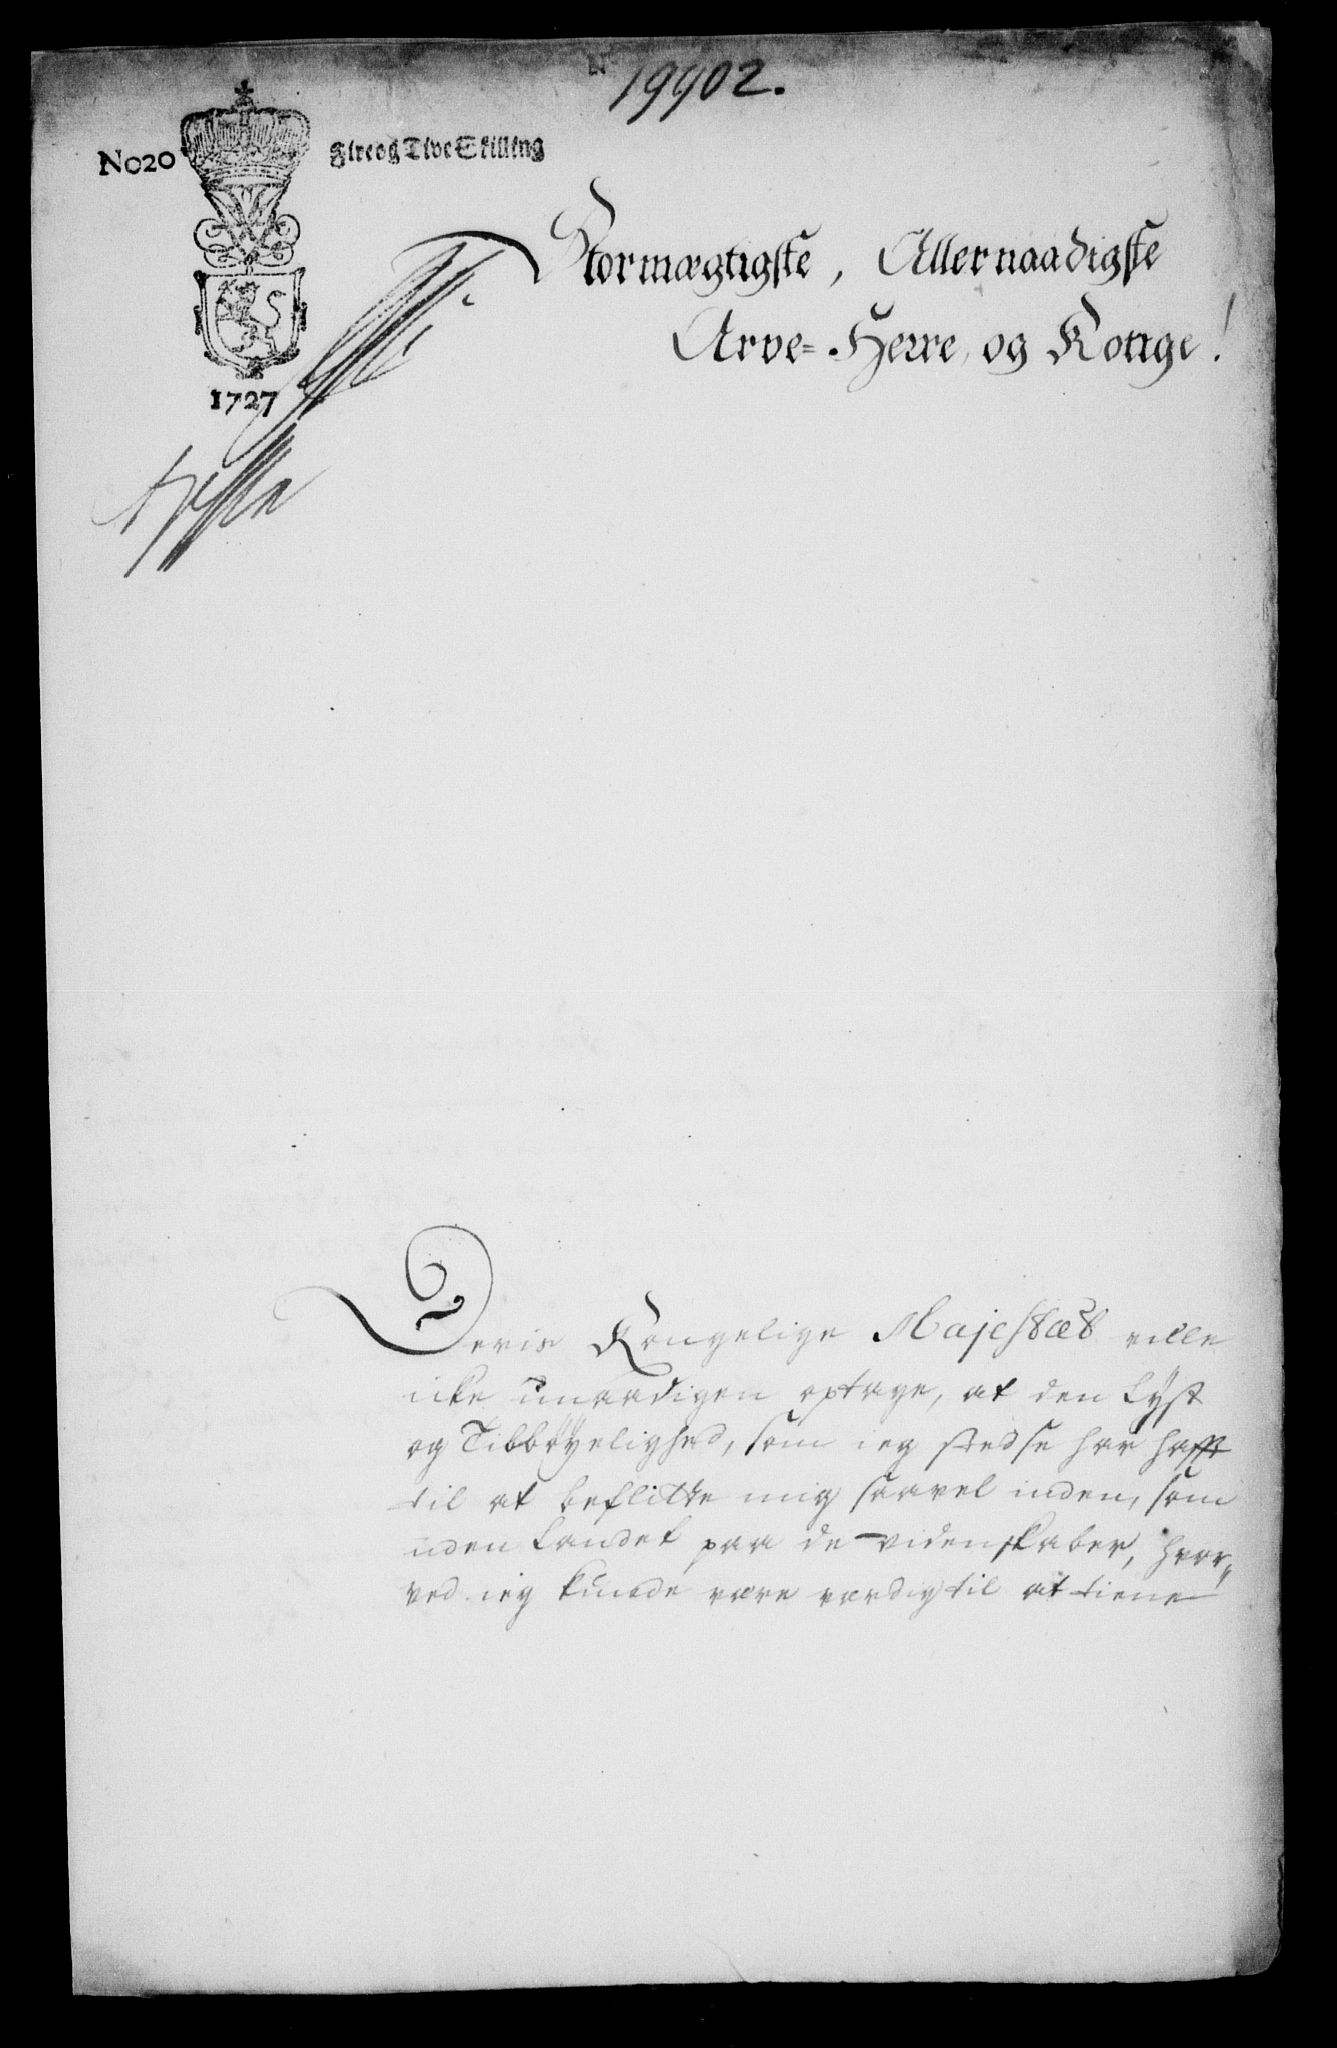 N 19902.
No20
Fire og Tive Skilling
Stormægtigste, Allernaadigste
Arve=Herre, og Konge!
1727
Deris Kongelige Majestæt ville
icke unaadigen optage, at den Lyst
og Tilbøyelighed, som ieg stedse har hafft
til at beflitte mig saavel inden, som
uden Landet paa de videnskaber, hvor„
ved ieg kunde være værdig til at tiene